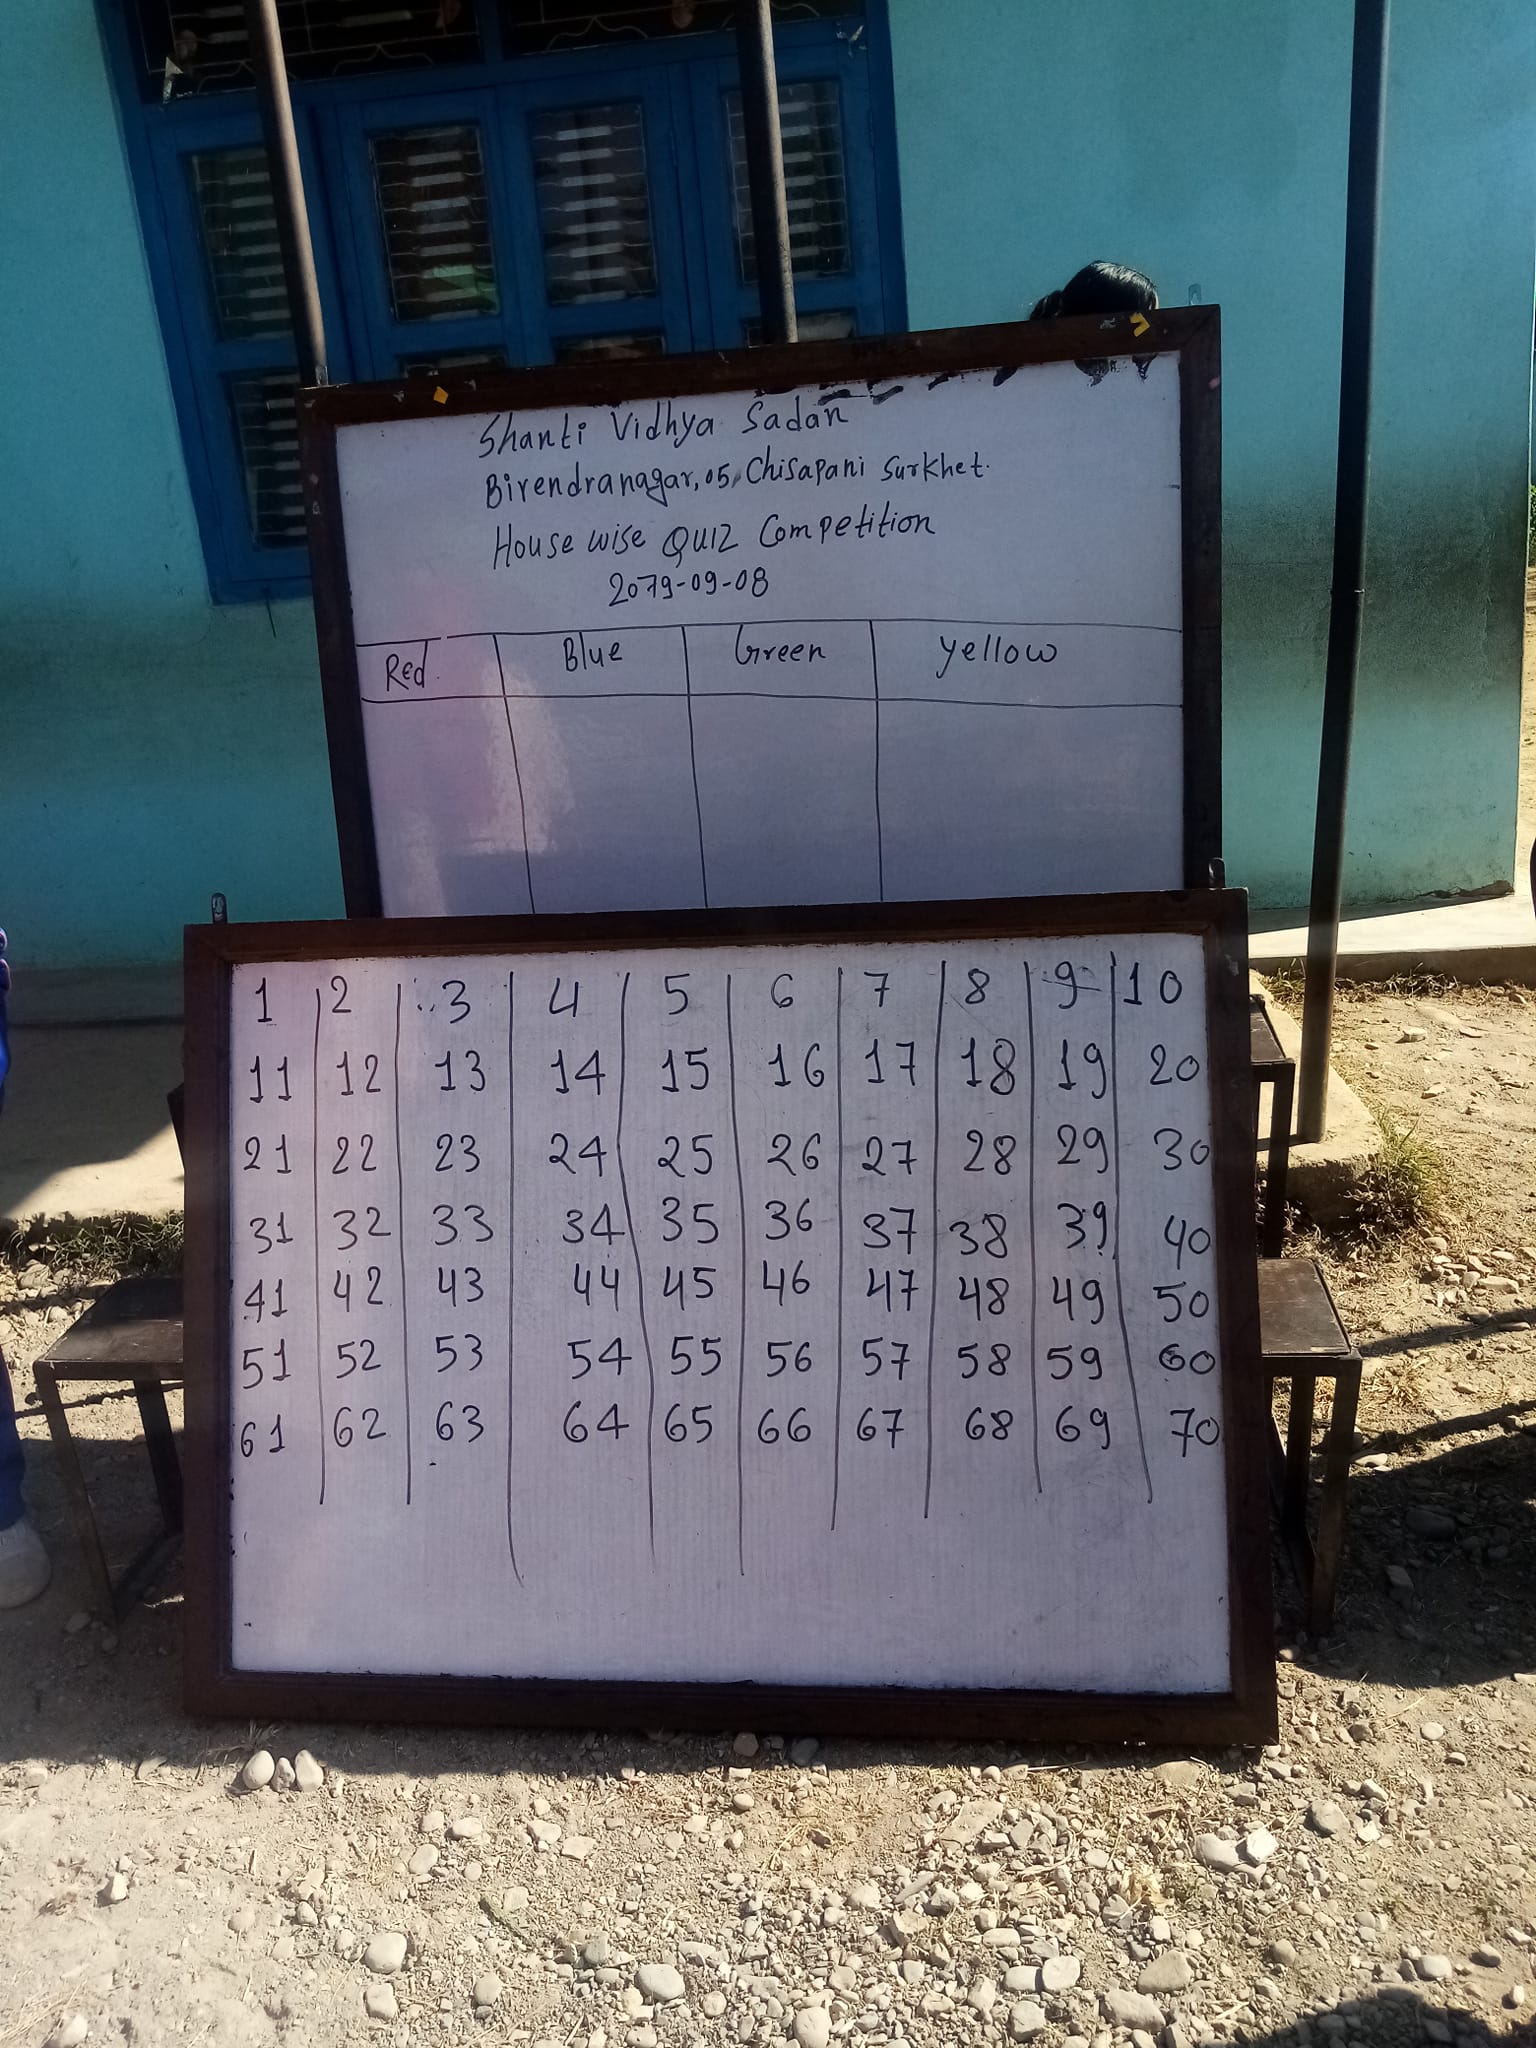 Shanti Vidhya Sadan
Birendranagar, 05, Chisapani Surkhet.
House wise QUIZ Competition
2079-09-08
Red Blue Green yellow
1 2 3 4 5 6 7 8 9 10
11 12 13 14 15 16 17 18 19 20
21 22 23 24 25 26 27 28 29 30
31 32 33 34 35 36 37 38 39 40
41 42 43 44 45 46 47 48 49 50
51 52 53 54 55 56 57 58 59 60
61 62 63 64 65 66 67 68 69 70